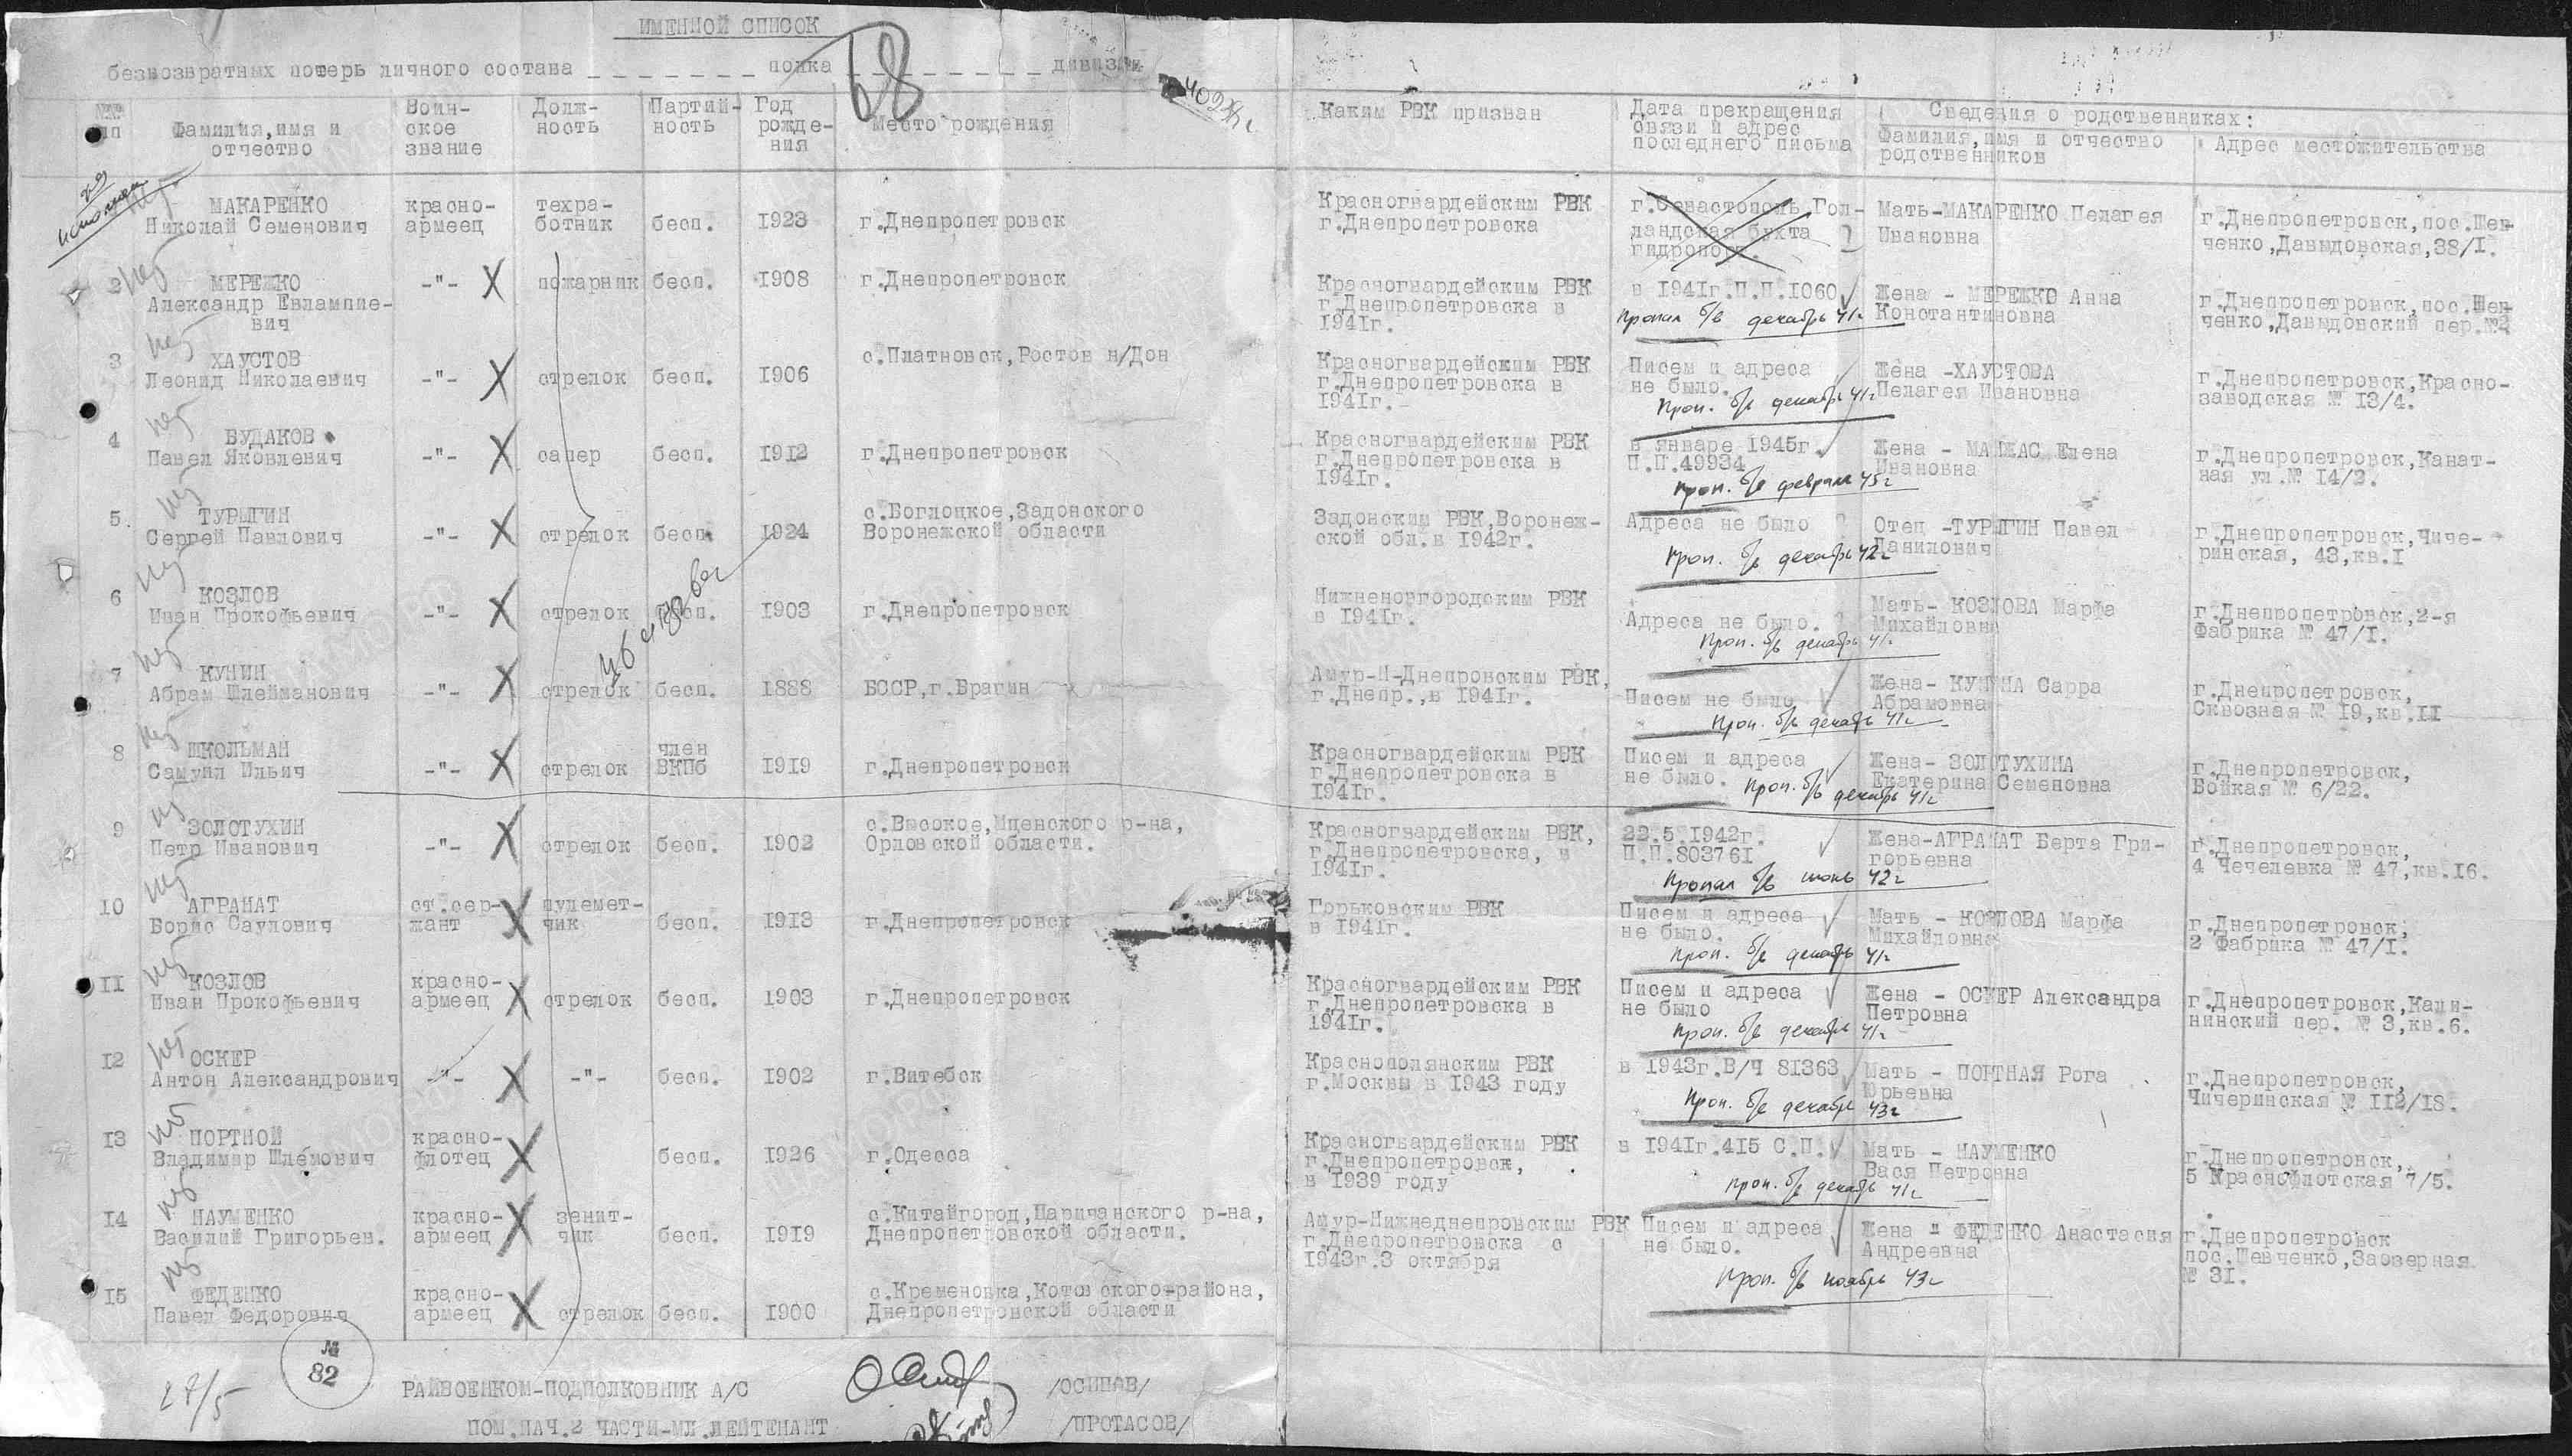 ИМЕННОЙ СПИСОК
68
безвозвратных потерь личного состава _ _ _ _ _ _ _ полка _ _ _ _ _ _ _ дивизии
№№ пп
Фамилия,имя и
отчество
Воин-
ское
звание
Долж-
ность
Партий-
ность
Год
рожде-
ния
Место рождения
Каким РВК призван
Дата прекращения
связи и адрес
последнего письма
Сведения о родственниках:
Фамилия,имя и отчество
родственников
Адрес местожительства
нет
МАКАРЕНКО
Николай Семенович
красно-
армеец
техра-
ботник
бесп.
1923
г.Днепропетровск
Красногвардейским РВК
г.Днепропетровска
г.Севастополь Гол-
ландская бухта
гидропорт.
Мать-МАКАРЕНКО Пелагея
Ивановна
г.Днепропетровск,пос.Шев-
ченко,Давыдовская,38/I.
2
нет
МЕРЕЖКО
Александр Евлампие-
вич
-"-
пожарник
бесп.
1908
г.Днепропетровск
Красногвардейским РВК
г.Днепропетровска в
1941г.
в 1941г.П.П.1060
Пропал б/в декабрь 41г
Жена - МЕРЕЖКО Анна
Константиновна
г.Днепропетровск,пос.Шев-
ченко,Давыдовский пер.№2
3
нет
ХАУСТОВ
Леонид Николаевич
-"-
стрелок
бесп.
1906
с.Платновск,Ростов н/Дон
Красногвардейским РВК
г.Днепропетровска в
1941г.
Писем и адреса
не было.
Проп. б/в декабрь 41г
Жена -ХАУСТОВА
Пелагея Ивановна
г.Днепропетровск,Красно-
заводская № 13/4.
4
нет
БУДАКОВ
Павел Яковлевич
-"-
сапер
бесп.
1912
г.Днепропетровск
Красногвардейским РВК
г.Днепропетровска в
1941г.
в январе 1945г.
П.П.49934
Проп. б/в февраль 45г
Жена - МАНЖАС Елена
Ивановна
г.Днепропетровск,Канат-
ная ул.№ 14/2.
5.
нет
ТУРЫГИН
Сергей Павлович
-"-
стрелок
бесп.
1924
с.Боглоцкое,Задонского
Воронежской области
Задонским РВК,Воронеж-
ской обл.в 1942г.
Адреса не было
Проп. б/в декабрь 42г
Отец -ТУРЫГИН Павел
Данилович
г.Днепропетровск,Чиче-
ринская, 43,кв.I
6
нет
КОЗЛОВ
Иван Прокофьевич
-"-
стрелок
бесп.
1903
г.Днепропетровск
Нижненовгородским РВК
в 1941г.
Адреса не было.
Проп. б/в декабрь 41г
Мать- КОЗЛОВА Марфа
Михайловна
г.Днепропетровск,2-я
Фабрика № 47/I.
7
нет
КУНИН
Абрам Шлейманович
-"-
стрелок
бесп.
1888
БССР,г.Брагин
Амур-Н-Днепровским РВК,
г.Днепр.,в 1941г.
Писем не было
Проп. б/в декабрь 41г
Жена- КУНИНА Сарра
Абрамовна
г.Днепропетровск,
Сквозная № 19,кв.II
8
нет
ШКОЛЬМАН
Самуил Ильич
-"-
стрелок
член
ВКПб
1919
г.Днепропетровск
Красногвардейским РВК
г.Днепропетровска в
1941г.
Писем и адреса
не было.
Проп. б/в декабрь 41г
Жена- ЗОЛОТУХИНА
Екатерина Семеновна
г.Днепропетровск,
Бойкая № 6/22.
9
нет
ЗОЛОТУХИН
Петр Иванович
-"-
стрелок
бесп.
1902
с.Высокое,Мценского р-на,
Орловской области.
Красногвардейским РВК,
г.Днепропетровска, в
1941г.
22.5.1942г.
П.П.803761
Пропал б/в июнь 42г
Жена-АГРАНАТ Берта Гри-
горьевна
г.Днепропетровск,
4 Чечелевка № 47,кв.16.
10
нет
АГРАНАТ
Борис Саулович
ст.сер-
жант
пулемет-
чик
бесп.
1913
г.Днепропетровск
Горьковским РВК
в 1941г.
Писем и адреса
не было.
Проп. б/в декабрь 41г
Мать - КОЗЛОВА Марфа
Михайловна
г.Днепропетровск,
2 Фабрика № 47/I.
II
нет
КОЗЛОВ
Иван Прокофьевич
красно-
армеец
стрелок
бесп.
1903
г.Днепропетровск
Красногвардейским РВК
г.Днепропетровска в
1941г.
Писем и адреса
не было
Проп. б/в декабрь 41г
Жена - ОСКЕР Александра
Петровна
г.Днепропетровск,Кали-
нинский пер. № 3,кв.6.
12
нет
ОСКЕР
Антон Александрович
-"-
-"-
бесп.
1902
г.Витебск
Краснополянским РВК
г.Москвы в 1943 году
в 1943г.В/Ч 81363
Проп. б/в декабрь 43г
Мать - ПОРТНАЯ Рога
Юрьевна
г.Днепропетровск,
Чичеринская № II2/18.
13
нет
ПОРТНОЙ
Владимир Шлемович
красно-
флотец
бесп.
1926
г.Одесса
Красногвардейским РВК
г.Днепропетровск,
в 1939 году
в 1941г.415 С.П.
Проп. б/в декабрь 41г
Мать - НАУМЕНКО
Вася Петровна
г.Днепропетровск,
5 Краснофлотская 7/5.
14
нет
НАУМЕНКО
Василий Григорьев.
красно-
армеец
зенит-
чик
бесп.
1919
с.Китайгород,Царичанского р-на,
Днепропетровской области.
Амур-Нижнеднепровским РВК
г.Днепропетровска с
1943г.3 октября
Писем и адреса
не было.
Проп. б/в ноябрь 43г
Жена - ФЕДЕНКО Анастасия
Андреевна
г.Днепропетровск
пос.Шевченко,Заозерная
№ 31.
15
нет
ФЕДЕНКО
Павел Федорович
красно-
армеец
стрелок
бесп.
1900
с.Кременовка,Котовского района,
Днепропетровской области
№
82
27/5
РАЙВОЕНКОМ-ПОДПОЛКОВНИК А/С
/ОСИПОВ/
ПОМ.НАЧ.2 ЧАСТИ-МЛ.ЛЕЙТЕНАНТ
/ПРОТАСОВ/